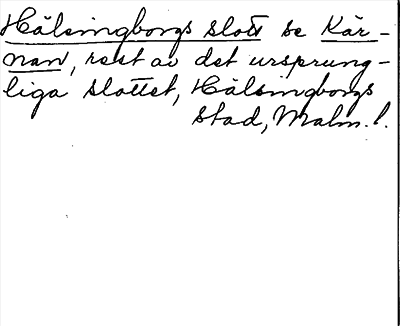 Hälsingborgs slott se Kär-
nan, rest av det ursprung-
liga slottet, Hälsingborgs
stad, Malm. l.